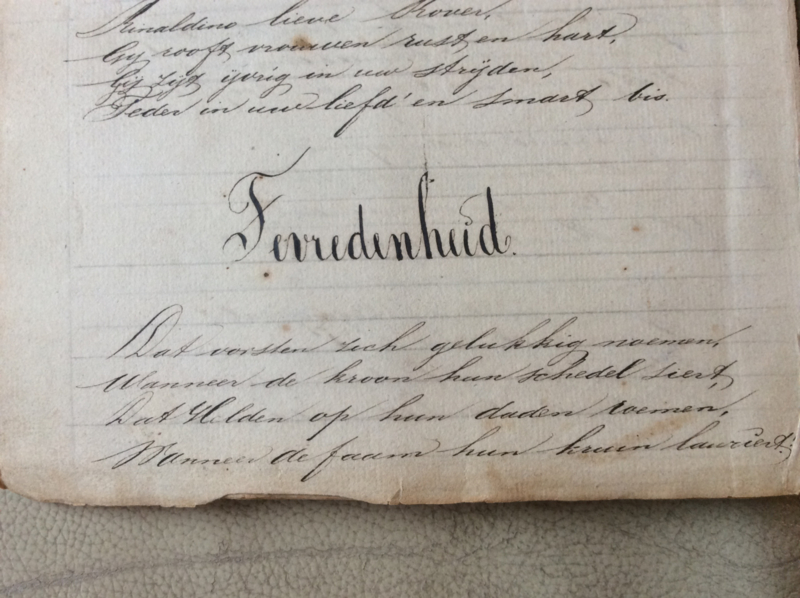 Rinaldino lieve Rover,
Gij rooft vrouwen rust en hart,
Gij zijt ijvrig in uw strijden,
Teder in uw liefd' en smart bis.
Tevredenheid.
Dat vorsten zich gelukkig noemen,
Wanneer de kroon hun schedel siert,
Dat Helden op hun daden roemen,
Wanneer de faam hun kruin lauriert: